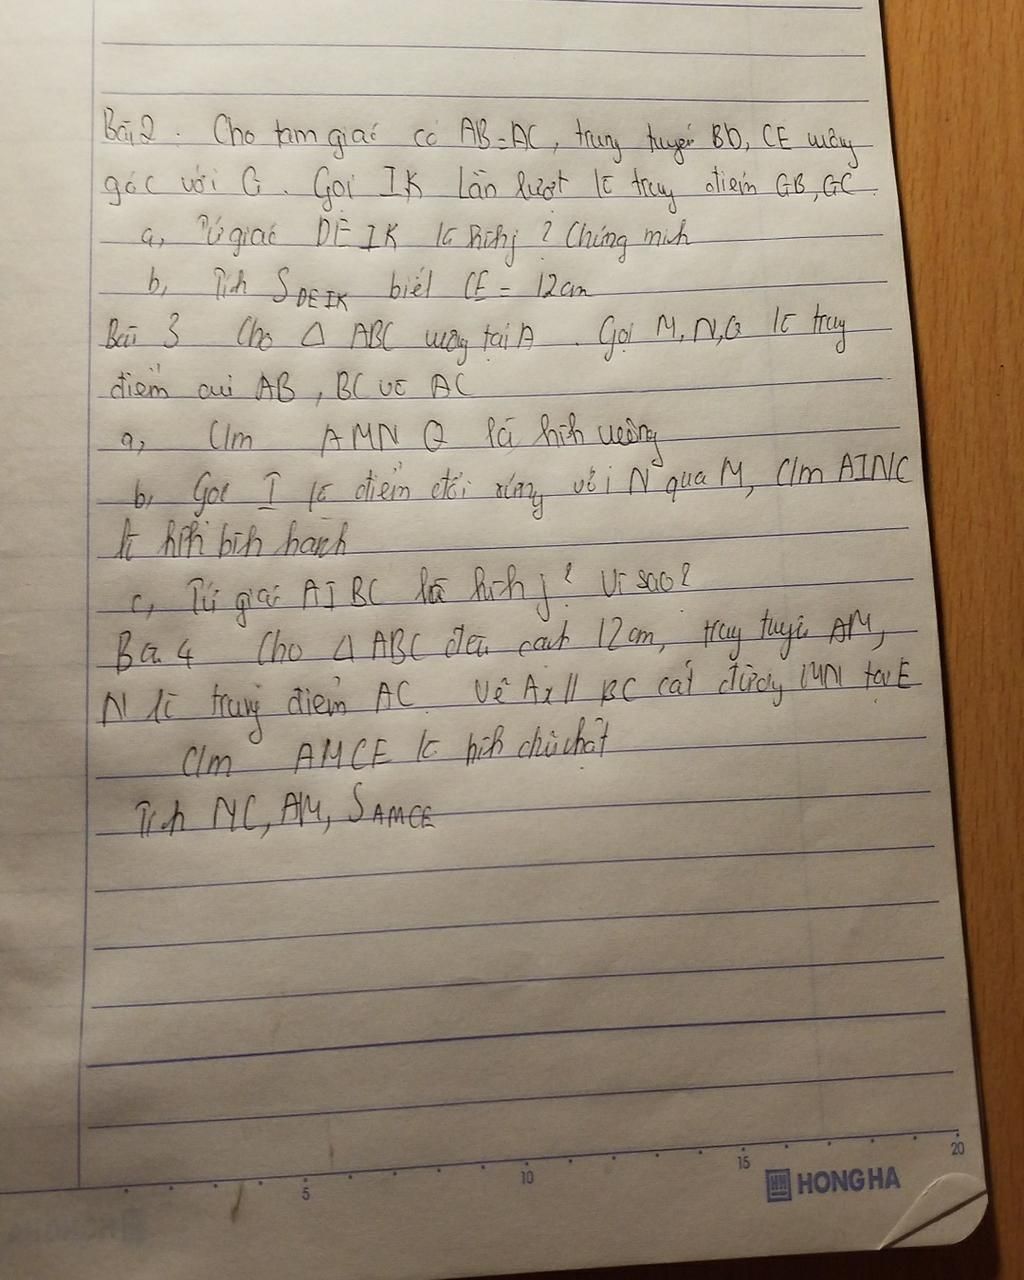 Bài 2. Cho tam giác có AB=AC, trung tuyến BD, CE vuông
góc với G. Gọi IK lần lượt là trung điểm GB, GC.
a, Tứ giác DEIK là hình j? Chứng minh
b, Tính SDEIK biết CE = 12cm
Bài 3 Cho Δ ABC vuông tại A. Gọi M, N, Q là trung
điểm của AB, BC và AC
a, C/m AMNQ là hình vuông
b, Gọi I là điểm đối xứng với N qua M, C/m AINC
là hình bình hành
c, Tứ giác AIBC là hình j? Vì sao?
Bài 4 Cho Δ ABC đều cạnh 12cm, trung tuyến AM,
N là trung điểm AC. Vẽ Ax // BC cắt đường MN tại E
C/m AMCE là hình chữ nhật
Tính NC, AM, SAMCE
5 10 15 20
HH HONG HA